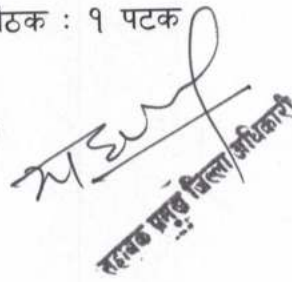 ठक : १ पटक
सहायक प्रमुख जिल्ला अधिकारी